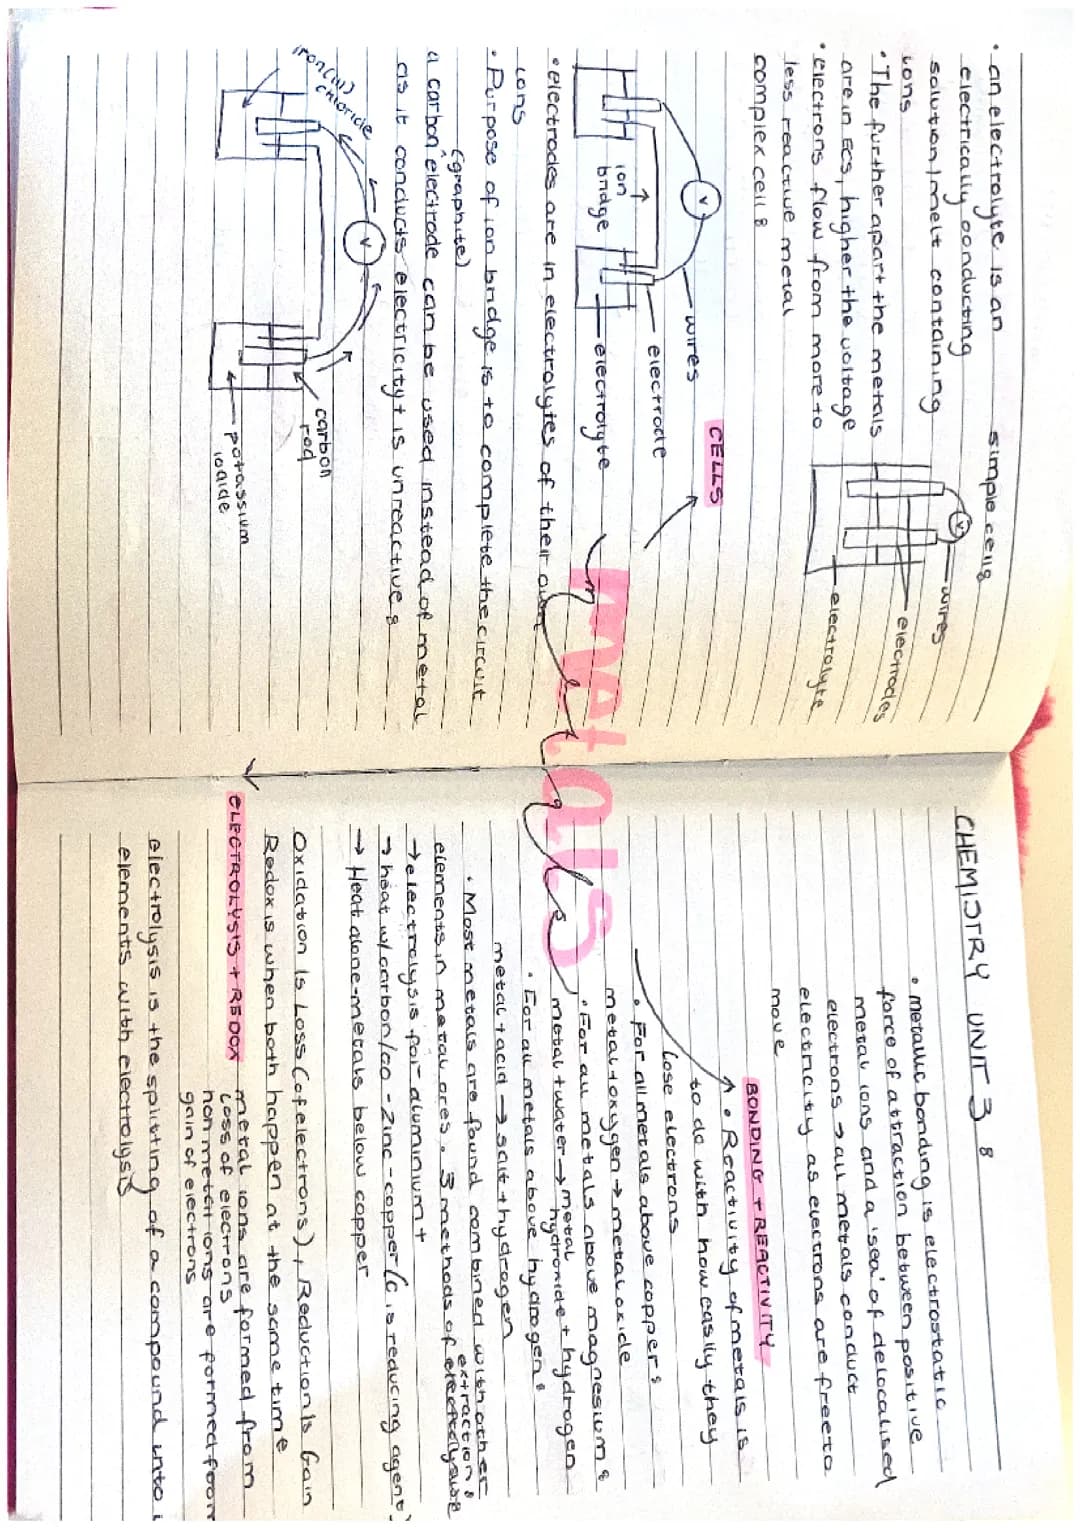 CHEMISTRY UNIT 3 :
• metallic bonding is electrostatic
force of attraction between positive
metal ions and a 'sea' of delocalised
electrons → all metals conduct
electricity as electrons are free to
move
BONDING + REACTIVITY
• Reactivity of metals is
to do with how easily they
lose electrons
• For all metals above copper:
metal + oxygen → metal oxide
• For all metals above magnesium:
metal + water → metal hydroxide + hydrogen
• For all metals above hydrogen:
metal + acid → salt + hydrogen
• Most metals are found combined with other
elements in metal ores. 3 methods of extraction:
→ electrolysis for aluminium +
→ heat w/ carbon/co - zinc - copper (C is reducing agent)
→ Heat alone - metals below copper
Oxidation Is Loss (of electrons), Reduction Is Gain
Redox is when both happen at the same time
ELECTROLYSIS + REDOX
metal ions are formed from
loss of electrons
non metal ions are formed from
gain of electrons
electrolysis is the splitting of a compound into
elements with electrolysis
metals
metals
CELLS
simple cells
wires
electrodes
electrolyte
• an electrolyte is an
electrically conducting
solution/melt containing
ions
• The further apart the metals
are in ECS, higher the voltage
• electrons flow from more to
less reactive metal
complex cell:
V
wires
electrode
ion
bridge
electrolyte
• electrodes are in electrolytes of their own
ions
• Purpose of ion bridge is to complete the circuit
(graphite)
a carbon ^ electrode can be used instead of metal
as it conducts electricity + is unreactive:
iron(III)
chloride
V
carbon
rod
potassium
iodide